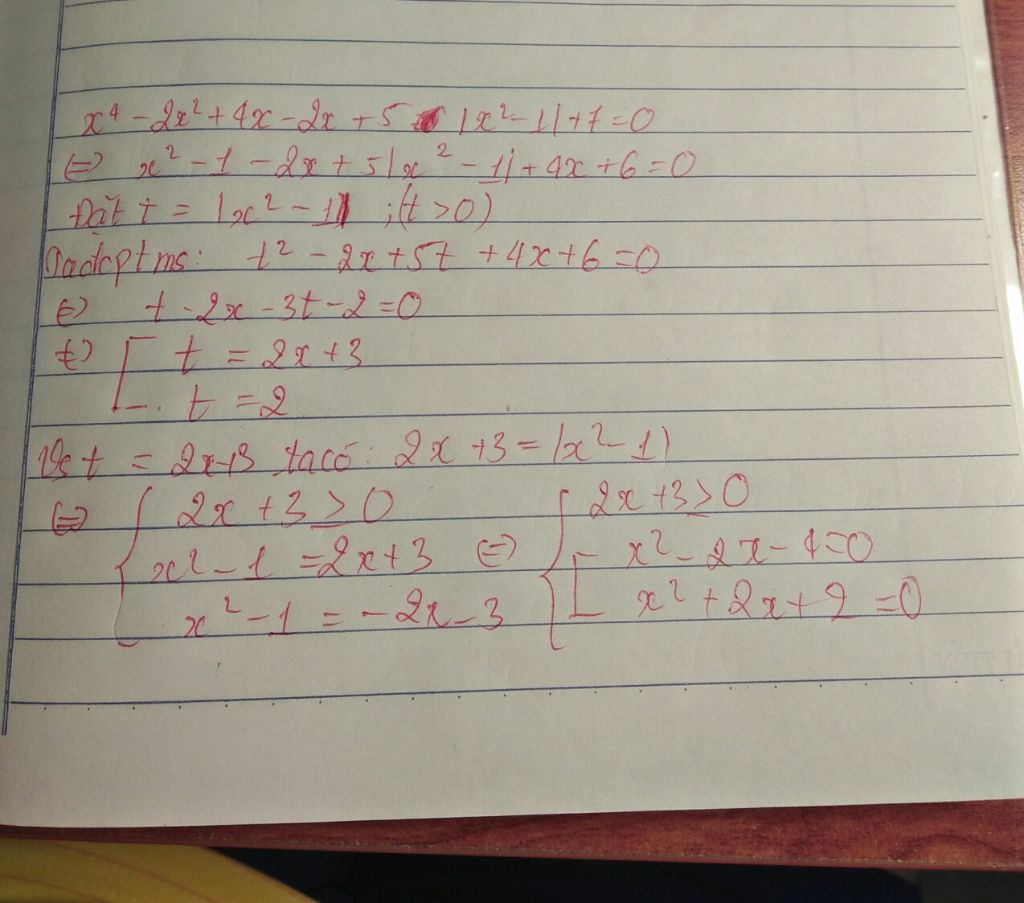 x⁴ - 2x² + 4x - 2x + 5 |x² - 1| + 7 = 0
⇔ x² - 1 - 2x + 5|x² - 1| + 4x + 6 = 0
Đặt t = |x² - 1| ; (t > 0)
Tađcptms: t² - 2x + 5t + 4x + 6 = 0
⇔ t - 2x - 3t - 2 = 0
⇔ [ t = 2x + 3
t = 2
Vs t = 2x+3 ta có: 2x + 3 = |x² - 1|
⇔ { 2x + 3 ≥ 0 { 2x + 3 ≥ 0
x² - 1 = 2x + 3 ⇔ [ x² - 2x - 4 = 0
x² - 1 = -2x - 3 x² + 2x + 2 = 0